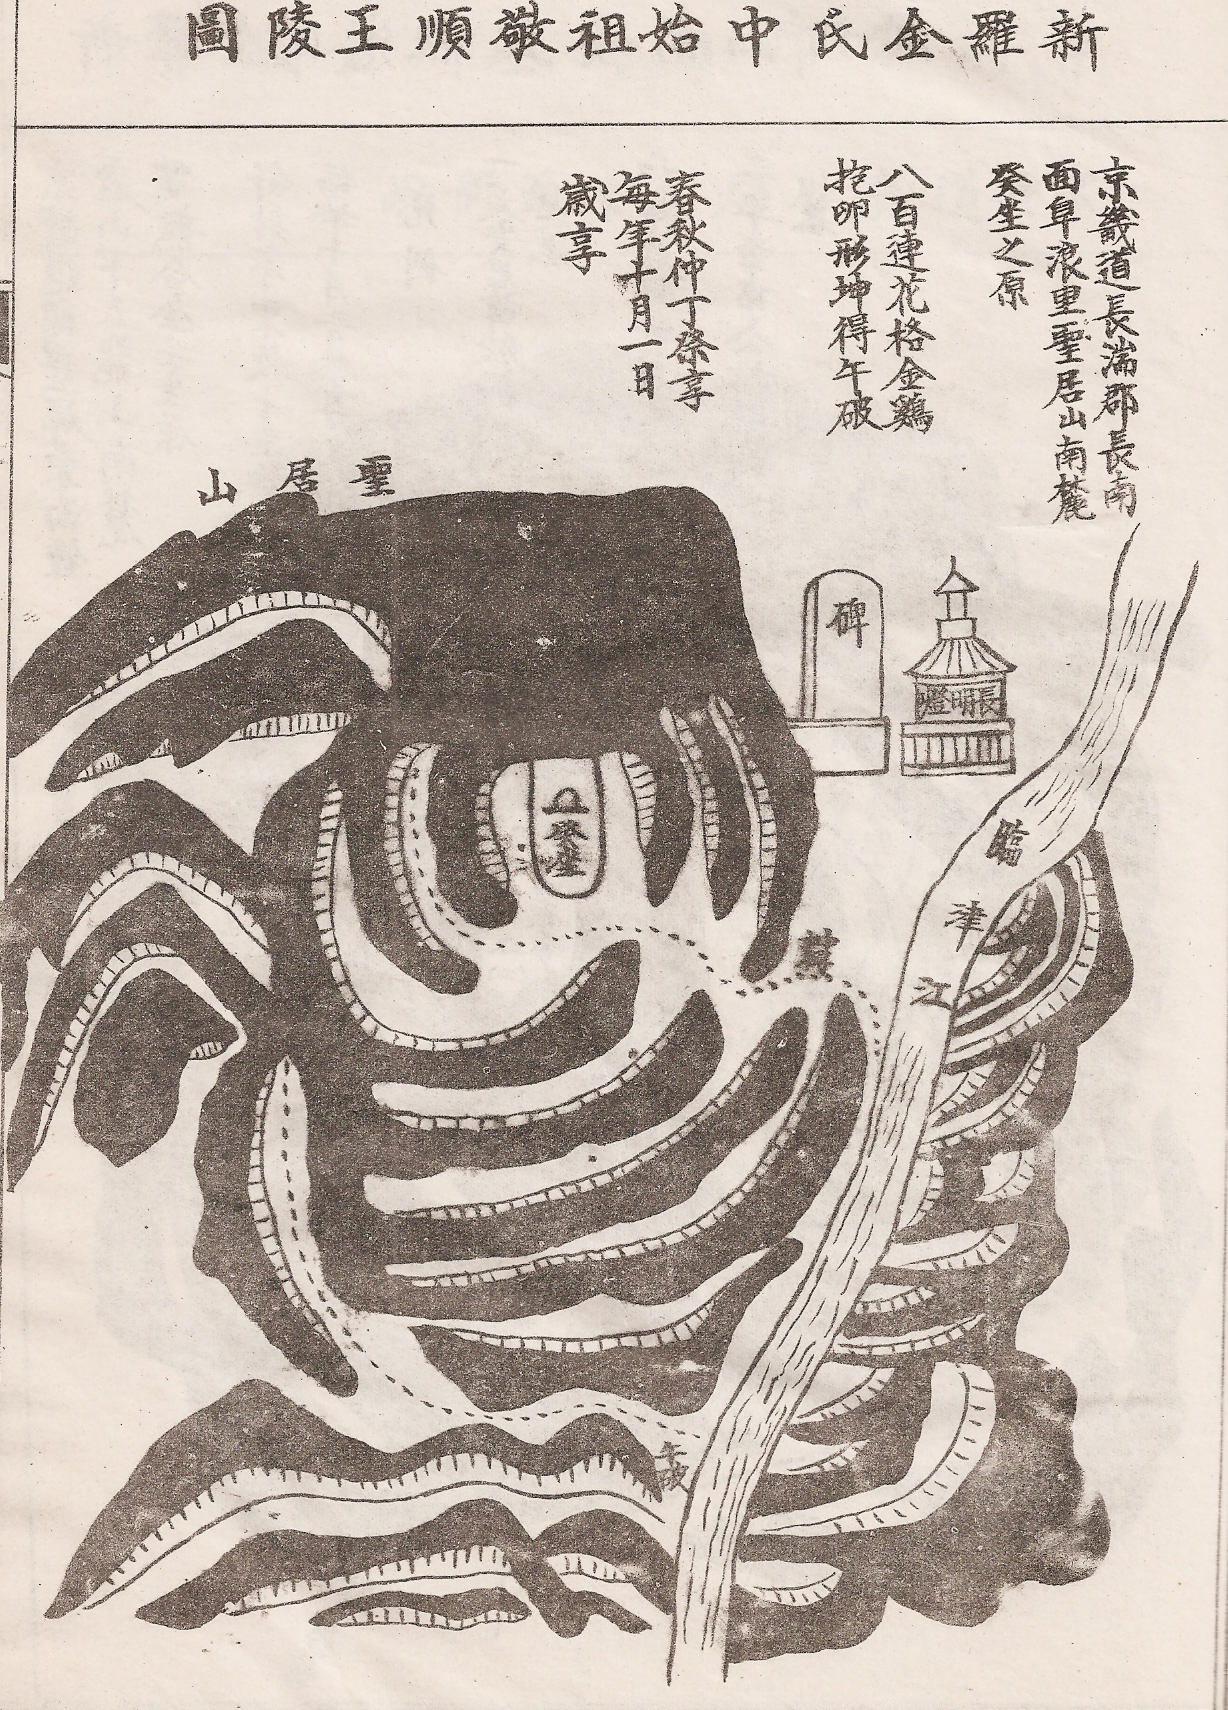 新羅金氏中始祖敬順王陵圖
京畿道長湍郡長南
面阜浪里聖居山南麓
癸坐之原
八百連花格金鷄
抱卵形坤得午破
春秋仲丁祭享
每年十月一日
歲享
聖居山
碑
長明燈
癸坐
臨津江
午破